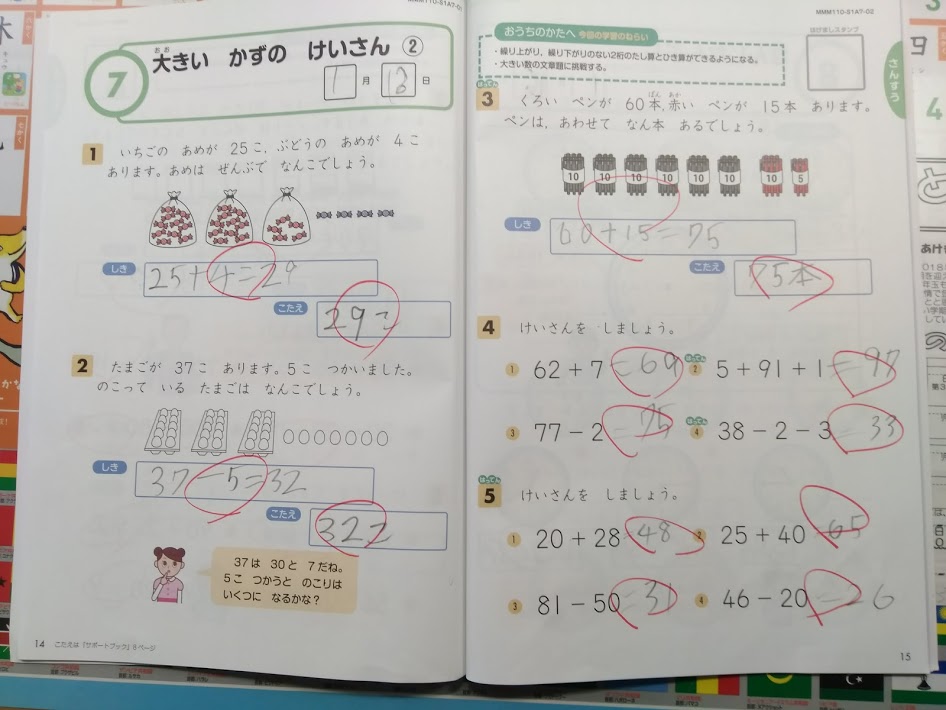 MMM110-S1A7-01
7
大きい かずの けいさん ②
おお
1月13日
1 いちごの あめが 25こ、ぶどうの あめが 4こ
あります。あめは ぜんぶで なんこでしょう。
しき 25+4=29
こたえ 29こ
2 たまごが 37こ あります。5こ つかいました。
のこって いる たまごは なんこでしょう。
しき 37-5=32
こたえ 32こ
37は 30と 7だね。
5こ つかうと のこりは
いくつに なるかな?
14 こたえは「サポートブック」8ページ
MMM110-S1A7-02
おうちのかたへ 今回の学習のねらい
・繰り上がり、繰り下がりのない2桁のたし算とひき算ができるようになる。
・大きい数の文章題に挑戦する。
はげましスタンプ
さんすう
はってん
3 くろい ペンが 60本、赤い ペンが 15本 あります。
ぽん あか
ペンは、あわせて なん本 あるでしょう。
10 10 10 10 10 10 10 5
しき 60+15=75
こたえ 75本
4 けいさんを しましょう。
① 62+7=69
はってん ② 5+91+1=97
③ 77-2=75
はってん ④ 38-2-3=33
はってん
5 けいさんを しましょう。
① 20+28=48
② 25+40=65
③ 81-50=31
④ 46-20=26
15